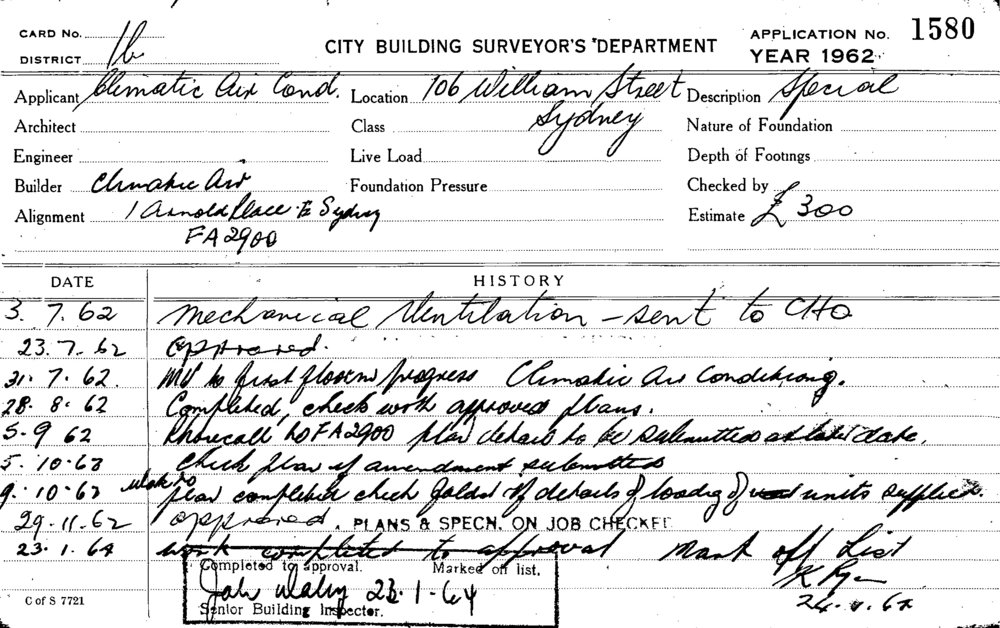 CARD No.
DISTRICT 16
CITY BUILDING SURVEYOR'S DEPARTMENT
APPLICATION No. 1580
YEAR 1962
Applicant Climatic Air Cond. Location 106 William Street Description Special
Architect Class Sydney Nature of Foundation
Engineer Live Load Depth of Footings
Builder Climatic Air Foundation Pressure Checked by
Alignment 1 Arnold Place E Sydney Estimate £300
FA2900
DATE HISTORY
3. 7. 62 Mechanical Ventilation - sent to CHO
23. 7. 62 approved.
31. 7. 62. MV to first floor in progress Climatic Air Conditioning.
28. 8. 62 Completed, check with approved plans.
5. 9 62 Phonecall to FA2900 plan details to be submitted at later date.
5. 10. 62 Check plan if amendment submitted
9. 10. 62 plan completed check if details of loading of units supplied.
29. 11. 62 approved. PLANS & SPECN. ON JOB CHECKED
23. 1. 64 work completed to approval Mark off List
Completed to approval. Marked off list.
23. 1 - 64
Senior Building Inspector.
C of S 7721